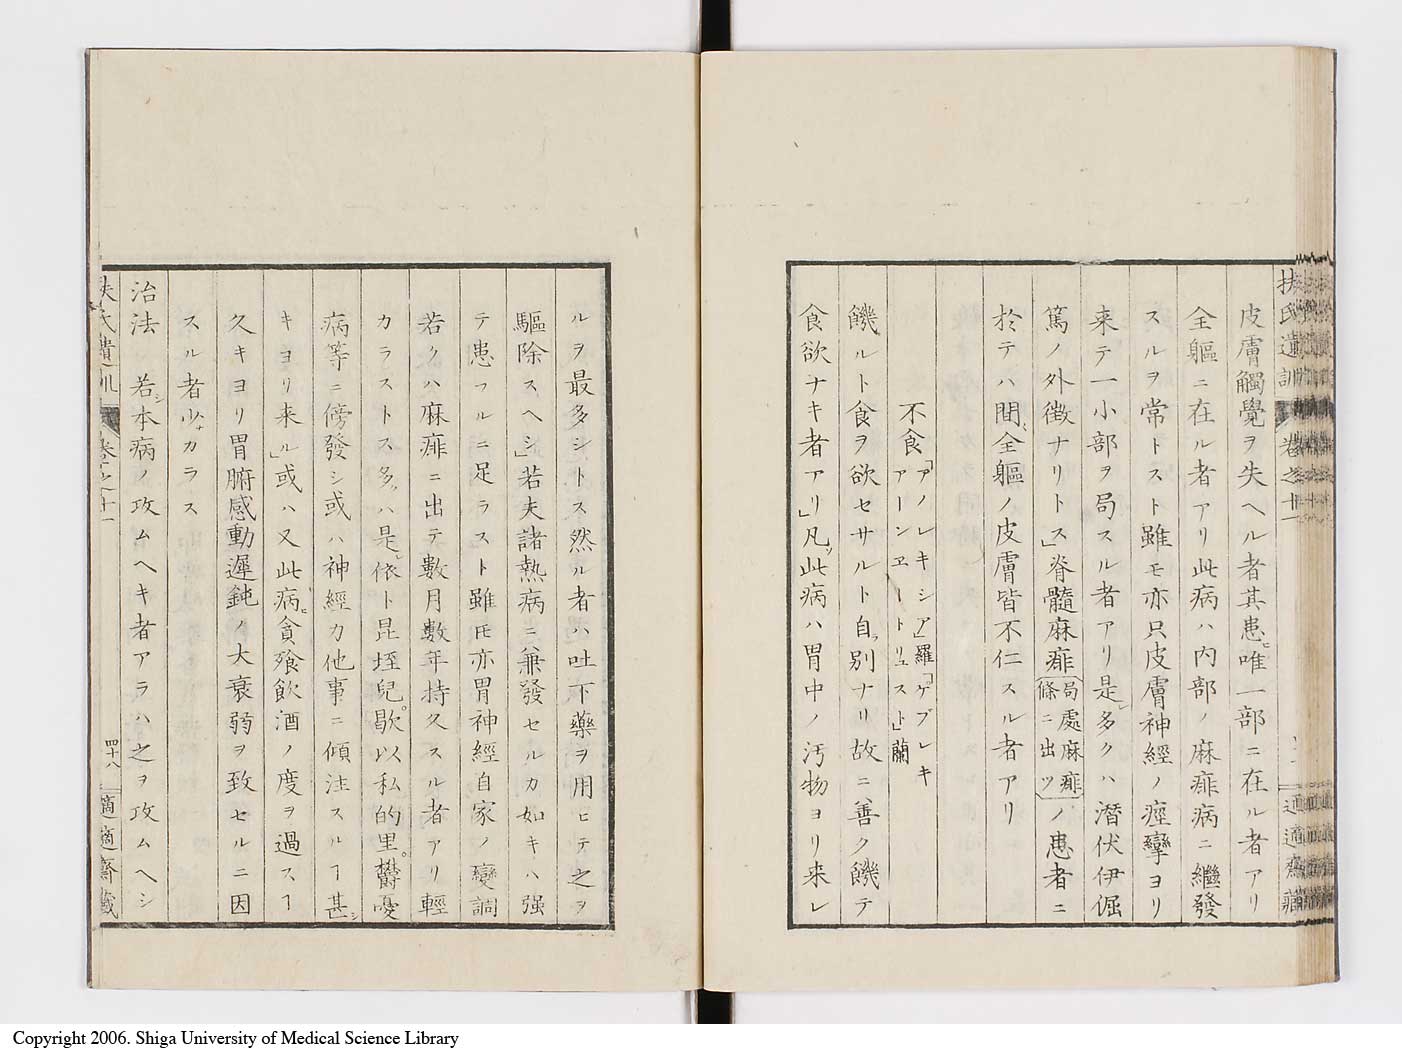 扶氏遺訓 卷之十一 適適齋藏
皮膚觸覺ヲ失ヘル者其患ヒ唯一部ニ在ル者アリ
全軀ニ在ル者アリ此病ハ内部ノ麻痱病ニ繼發
スルヲ常トスト雖モ亦只皮膚神經ノ痙攣ヨリ
来テ一小部ヲ局スル者アリ是レ多クハ潜伏伊倔
篤ノ外徴ナリトス」脊髓麻痱(局處麻痱條ニ出ツ)ノ患者ニ
於テハ間全軀ノ皮膚皆不仁スル者アリ
不食「アノレキシア」羅「ゲブレキアーンヱートリュスト」蘭
饑ルト食ヲ欲セサルト自ラ別ナリ故ニ善ク饑テ
食欲ナキ者アリ」凡ソ此病ハ胃中ノ汚物ヨリ来レ
ルヲ最多シトス然ル者ハ吐下藥ヲ用ヒテ之ヲ
驅除スヘシ」若夫諸熱病ニ兼發セルカ如キハ强
テ患フルニ足ラスト雖モ亦胃神經自家ノ變調
若クハ麻痱ニ出テ數月數年持久スル者アリ輕
カラストス多クハ是レ依卜昆垤兒歇以私的里欝憂
病等ニ傍發シ或ハ神經カ他事ニ傾注スルヿ甚シ
キヨリ来ル」或ハ又此病ヒ貪飱飲酒ノ度ヲ過スヿ
久キヨリ胃腑感動遲鈍ノ大衰弱ヲ致セルニ因
スル者少ナカラス
治法 若シ本病ノ攻ムヘキ者アラハ之ヲ攻ムヘシ
扶氏遺訓 卷之十一 四十八 適適齋藏
Copyright 2006. Shiga University of Medical Science Library